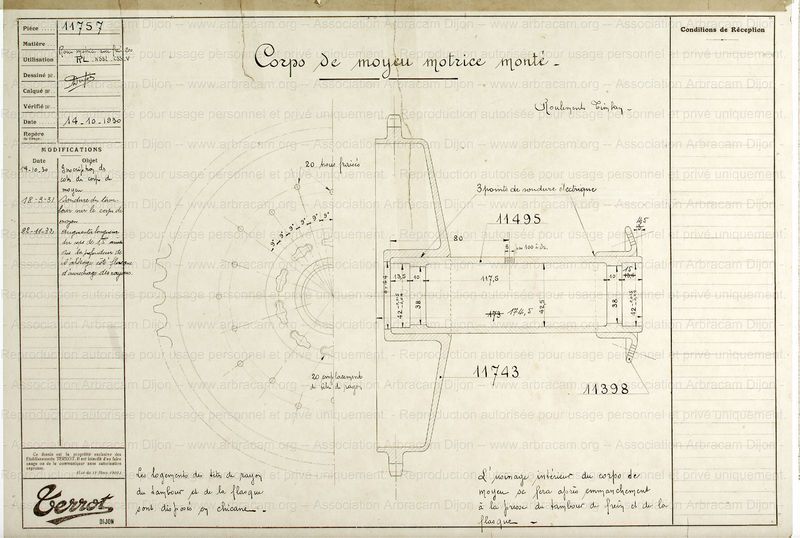 Pièce 11757
Matière
Utilisation
RL
Dessiné par
Calqué par
Vérifié par
Date 14-10-1930
Repère
MODIFICATIONS
Date Objet
14-10.30 Inscription de
cote du corps de
moyeu
18-9-31 Soudure du tam
bour sur le corps de
moyeu
22-11-32
Ce dessin est la propriété exclusive des
Etablissements TERROT. Il est interdit d'en faire
usage ou de le communiquer sans autorisation
expresse.
Terrot
DIJON
Corps de moyeu motrice monté.
Roulements Timken
Conditions de Réception
20 trous fraisés
9° 9° 9° 9°
3 points de soudure électrique
11495
80
13,5
10
117,5
10
15
42
38
173 174,5
42,5
38
42
45
11743
11398
20 emplacements
de tête de rayon
Les logements des têtes de rayon
du tambour et de la flasque
sont disposés en chicane.
L'usinage intérieur du corps de
moyeu se fera après emmanchement
à la presse du tambour de frein et de la
flasque.
Reproduction autorisée pour usage personnel et privé uniquement - Association Arbracam Dijon - www.arbracam.org